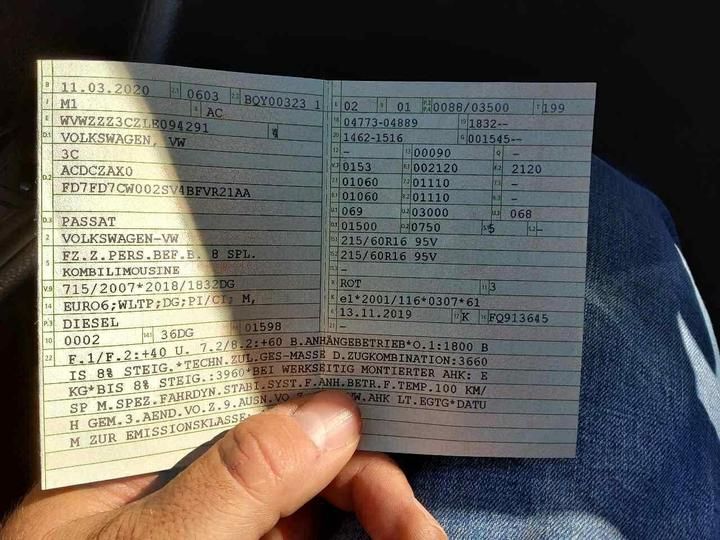 B 11.03.2020 2.1 0603 2.2 BQY00323 1
J M1 4 AC
E WVWZZZ3CZLE094291
D.1 VOLKSWAGEN, VW
3C
D.2 ACDCZAX0
FD7FD7CW002SV4BFVR21AA
D.3 PASSAT
2 VOLKSWAGEN-VW
5 FZ.Z.PERS.BEF.B. 8 SPL.
KOMBILIMOUSINE
V.9 715/2007*2018/1832DG
14 EURO6;WLTP;DG;PI/CI; M,
P.3 DIESEL
10 0002 14.1 36DG 01598
L 02 9 01 P.2 P.4 0088/03500 T 199
18 04773-04889 19 1832--
20 1462-1516 G 001545--
12 - 13 00090 Q -
V.7 0153 F.1 002120 F.2 2120
7.1 01060 7.2 01110 7.3 -
8.1 01060 8.2 01110 8.3 -
U.1 069 U.2 03000 U.3 068
O.1 01500 O.2 0750 S.1 5 S.2 -
15.1 215/60R16 95V
15.2 215/60R16 95V
15.3 -
R ROT 11 3
K e1*2001/116*0307*61
6 13.11.2019 17 K 16 FQ913645
21 -
22 F.1/F.2:+40 U. 7.2/8.2:+60 B.ANHÄNGEBETRIEB*O.1:1800 B
IS 8% STEIG.*TECHN.ZUL.GES-MASSE D.ZUGKOMBINATION:3660
KG*BIS 8% STEIG.:3960*BEI WERKSEITIG MONTIERTER AHK: E
SP M.SPEZ.FAHRDYN.STABI.SYST.F.ANH.BETR.F.TEMP.100 KM/
H GEM.3.AEND.VO.Z.9.AUSN.VO.Z. AHK LT.EGTG*DATU
M ZUR EMISSIONSKLASSE: